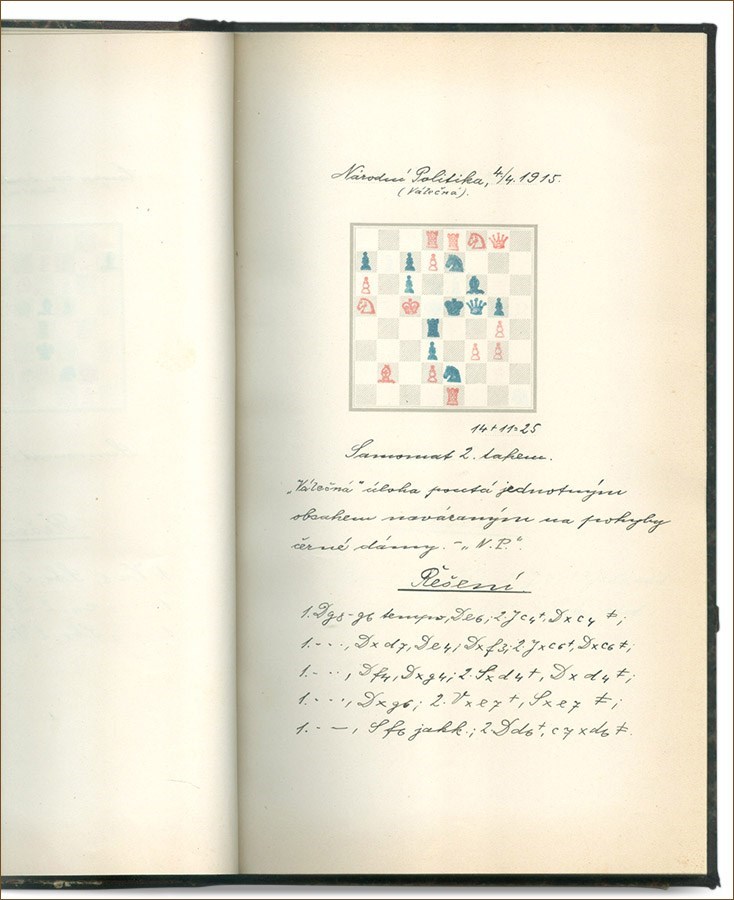 Národní Politika, 4/4. 1915.
(Válečná).
14+11=25
Samomat 2. tahem.
„Válečná" úloha poutá jednotným
obsahem navázaným na pohyby
černé dámy. – „N. P.".
Řešení.
1. Dg8-g6 tempo, De6; 2. Jc4+, Dxc4 ≠;
1. - - ·, Dxd7, De4, Dxf3; 2. Jxc6+, Dxc6 ≠;
1. - - ·, Df4, Dxg4; 2. Sxd4+, Dxd4 ≠;
1. - - ·, Dxg6; 2. Vxe7+, Sxe7 ≠;
1. - —, Sf6 jakk.; 2 Dd6+, c7xd6 ≠.